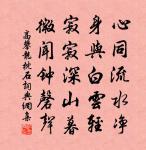 心同流水淨
身與白雲輕
寂寂深山暮
微聞鐘磬聲
高攀龍枕石詞典網集